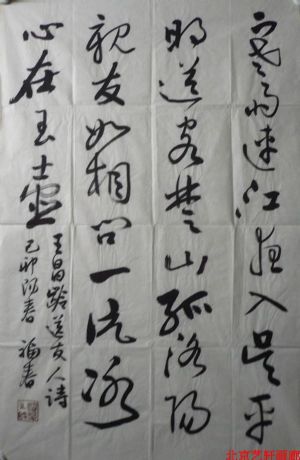 寒雨連江夜入吴平
明送客楚山孤洛阳
親友如相問一片冰
心在玉壺
王昌齡送友人詩
己卯阳春 福春
北京艺轩画廊